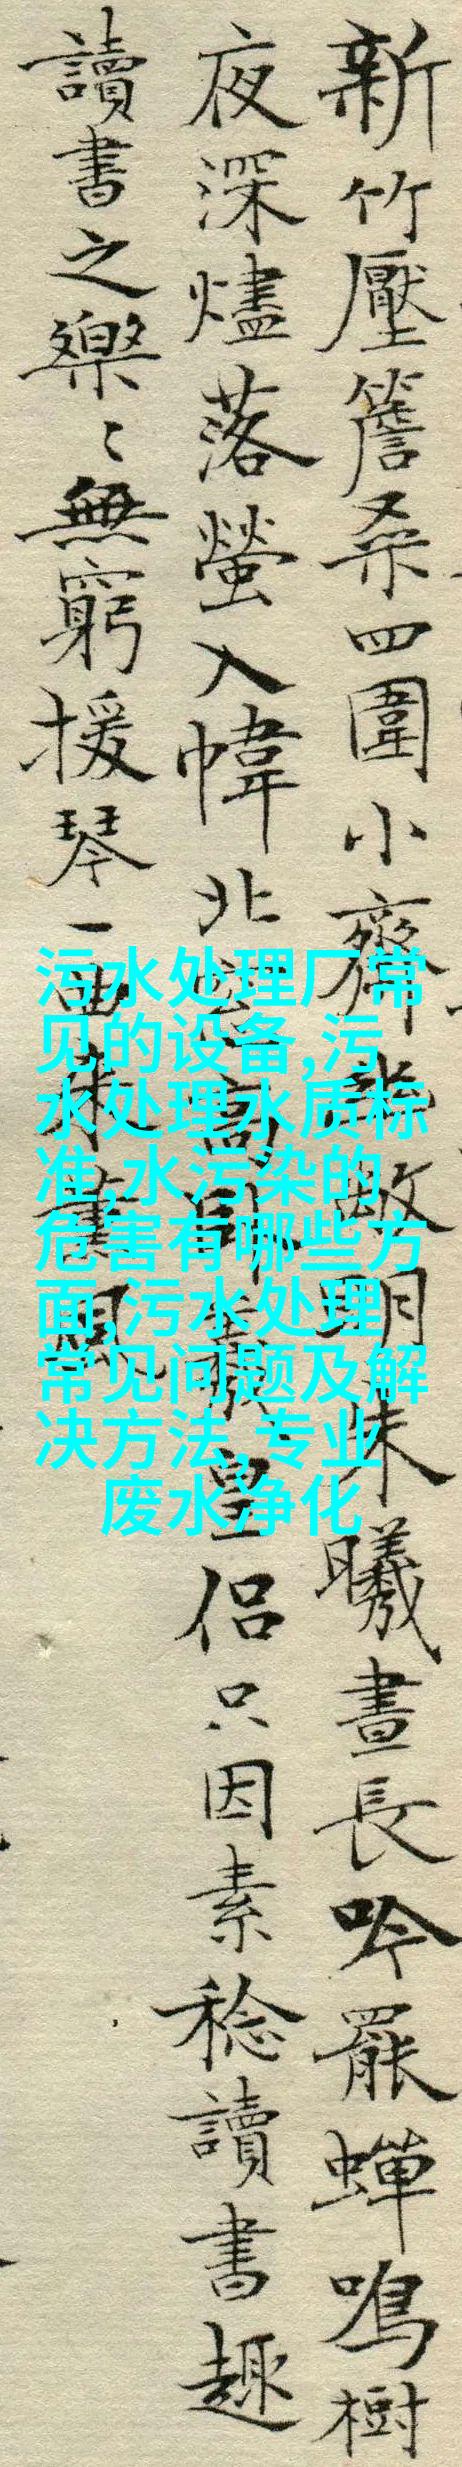 新竹壓簷桑四圍小齋幽敞明朱曦晝長吟罷蟬鳴樹
夜深燼落螢入幃北窗高臥羲皇侶只因素稔讀書趣
讀書之樂〻無窮援琴一曲來薰風
污水处理厂常
见的设备,污
水处理水质标
准,水污染的
危害有哪些方
面,污水处理
常见问题及解
决方法,专业
废水净化